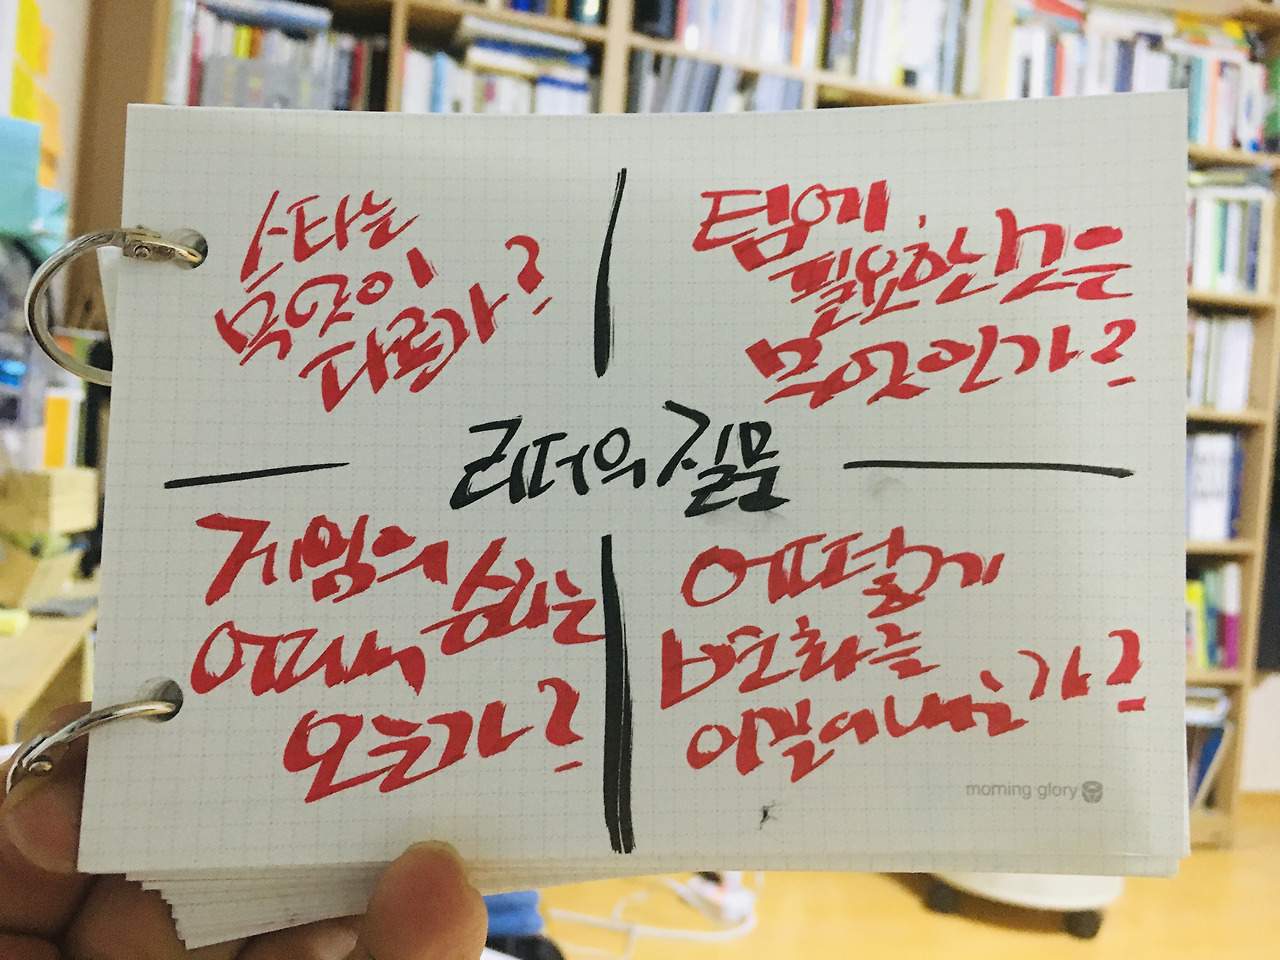 스타는
무엇이
다른가?
팀에
필요한 것은
무엇인가?
리더의 질문
게임의
승화는
어디서
오는가?
어떻게
변화를
이끌어내는가?
morning glory